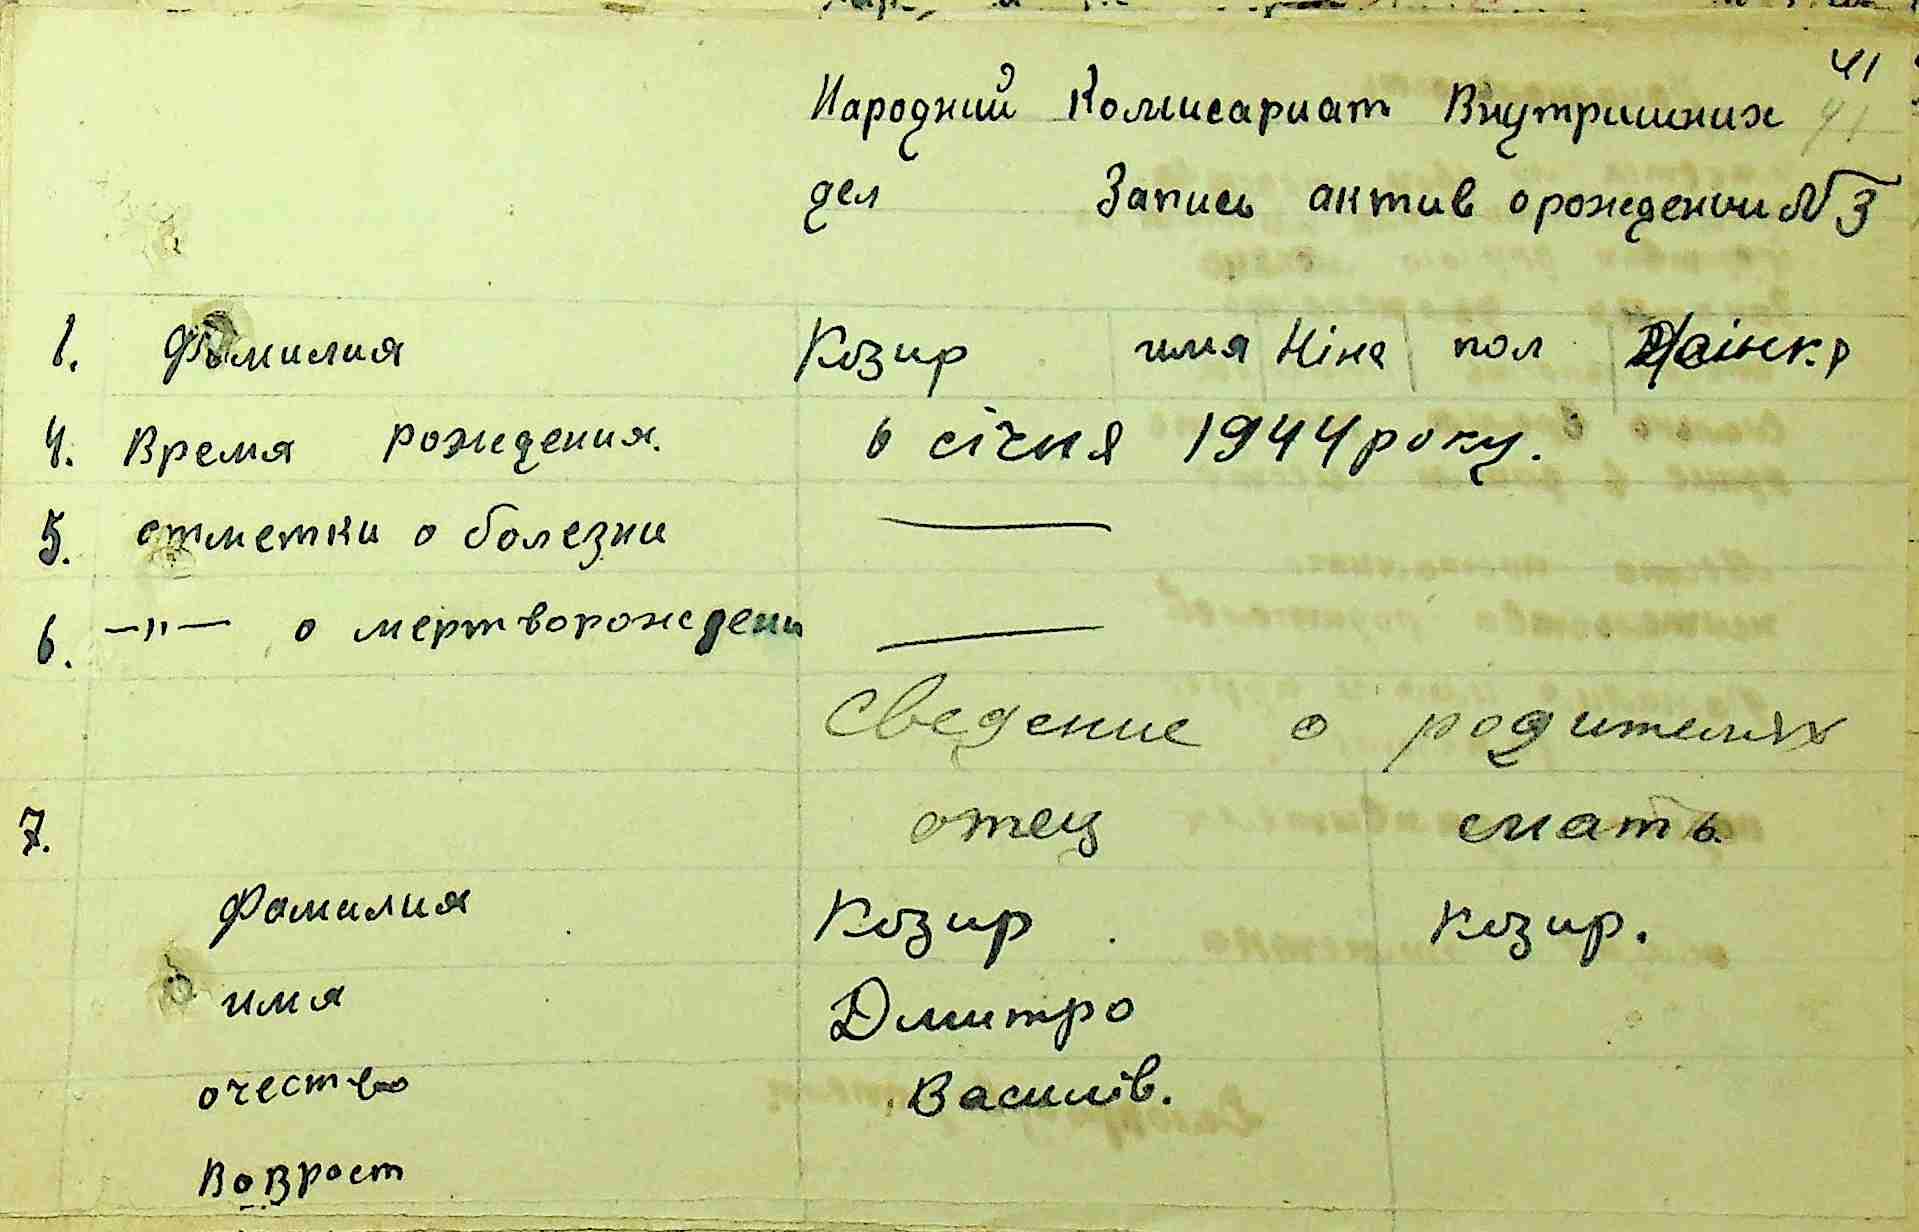 41
41
Народний Комисариат Внутришних
дел Запись актив о рождении №3
1. Фамилия Козир имя Ніна пол Жінк.
4. Время рождения. 6 січня 1944 року.
5. отметки о болезни —
6. —"— о мертворождени —
Сведение о родителях
7. отец мать
Фамилия Козир Козир.
имя Дмитро
очество Василів.
Возрост